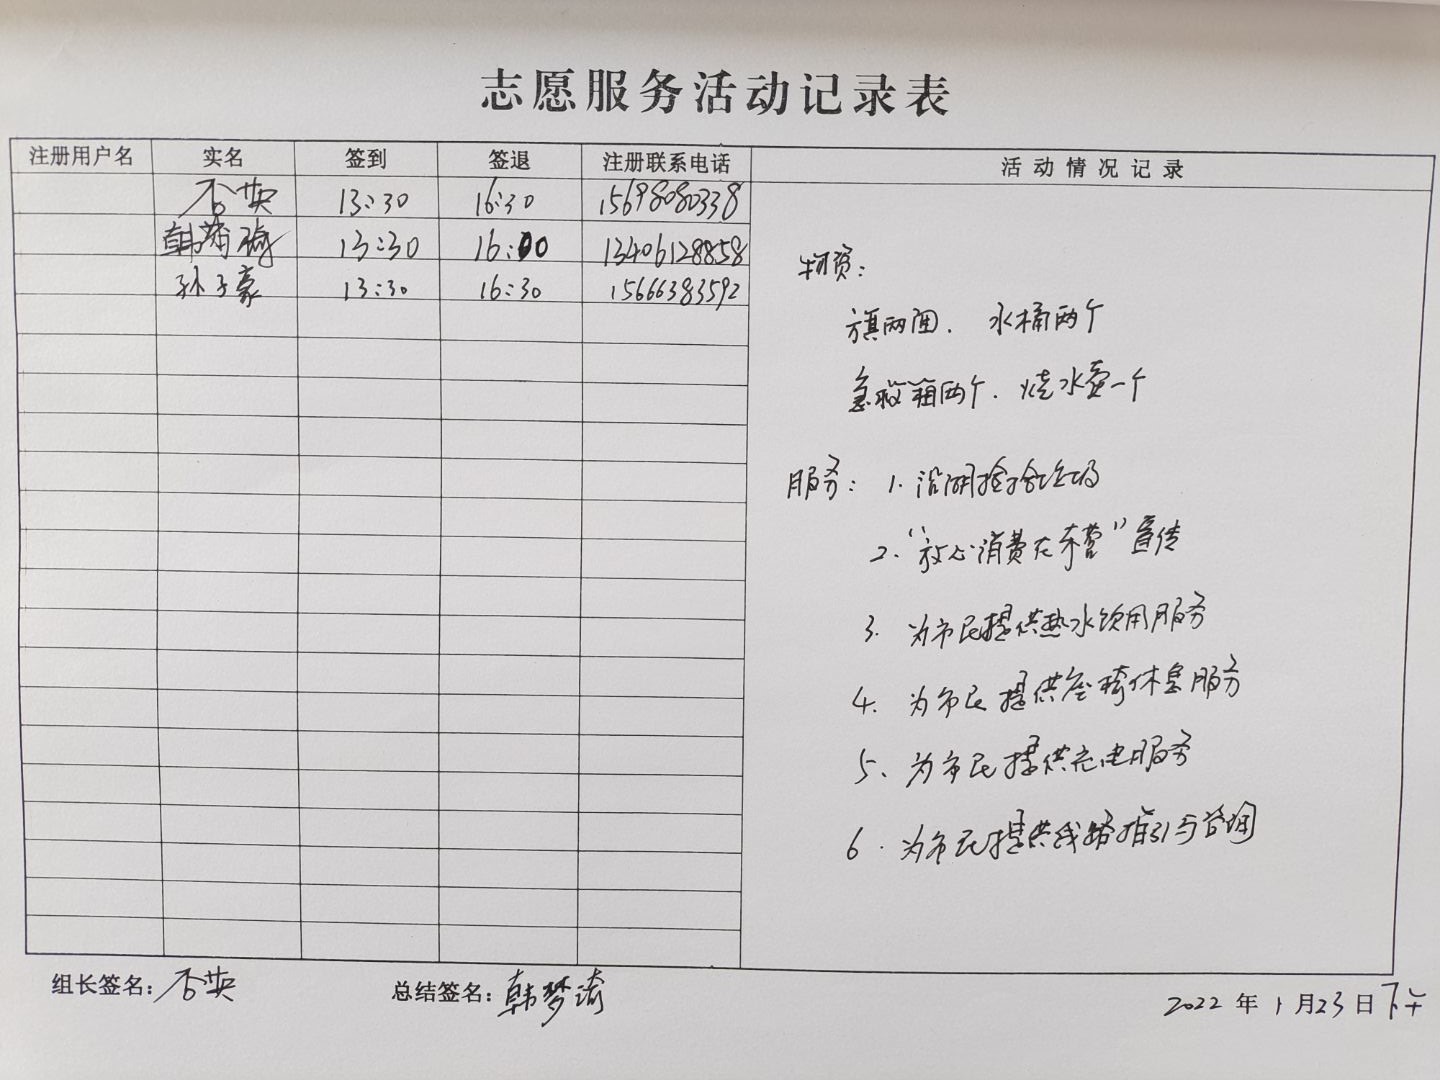 志愿服务活动记录表
注册用户名 实名 签到 签退 注册联系电话 活动情况记录
英 13:30 16:30 15698080338
韩梦 13:30 16:00 13406128858
孙子豪 13:30 16:30 15666383592
物资：
旗两面、水桶两个
急救箱两个、烧水壶一个
服务：1.沿湖捡拾垃圾
2、“放心消费在东营”宣传
3.为市民提供热水饮用服务
4.为市民提供座椅休息服务
5、为市民提供充电服务
6.为市民提供线路指引与咨询
组长签名：英 总结签名：韩梦
2022年1月23日下午